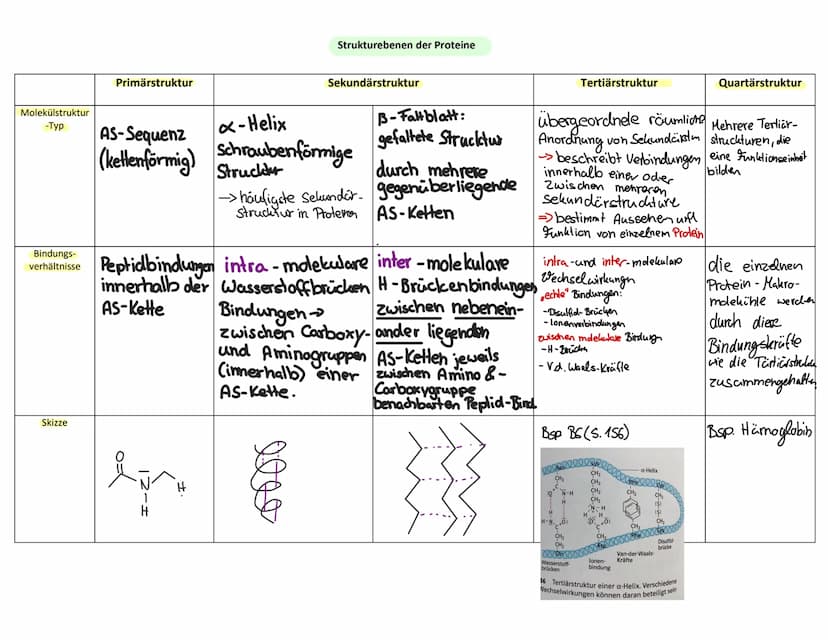 Strukturebenen der Proteine
Primärstruktur
Sekundärstruktur
Tertiärstruktur
Quartärstruktur
Molekülstruktur
-Typ
AS-Sequenz
(kettenförmig)
α-Helix
Schraubenförmige
Struktur
→ häufigste Sekundär-
struktur in Proteinen
β-Faltblatt:
gefaltete Strucktur
durch mehrere
gegenüberliegende
AS-Ketten
übergeordnete räumliche
Anordnung von Sekundärstr.
→ beschreibt Verbindungen
innerhalb einer oder
zwischen mehreren
Sekundärstrukture
⇒ bestimmt Aussehen und
Funktion von einzelnem Protein
Mehrere Tertiär-
struckturen, die
eine Funktionseinheit
bilden
Bindungs-
verhältnisse
Peptidbindungen
innerhalb der
AS-Kette
intra-molekulare
Wasserstoffbrücken
Bindungen →
zwischen Carboxy-
und Aminogruppen
(innerhalb) einer
AS-Kette.
inter-molekulare
H-Brückenbindungen
zwischen nebenein-
ander liegenden
AS-Ketten jeweils
zwischen Amino &-
Carboxygruppe
benachbarten Peptid-Bind.
intra-und inter-molekulare
Wechselwirkungen
"echte" Bindungen:
-Disulfid-Brücken
-Ionenverbindungen
zwischen molekulare Bindung
-H-Brücken
-V.d.Waals-Kräfte
die einzelnen
Protein-Makro-
moleküle werden
durch diese
Bindungskräfte
wie die Tärtiärstruktur
zusammengehalten
Skizze
O
N
H
H
Bsp B5 (S.156)
α-Helix
CH₃
CH₂
Wasserstoff-
brücken
Ionen-
bindung
Van-der-Waals-
Kräfte
Disulfid-
brücke
Tertiärstruktur einer α-Helix. Verschiedene
Wechselwirkungen können daran beteiligt sein
Bsp. Hämoglobin